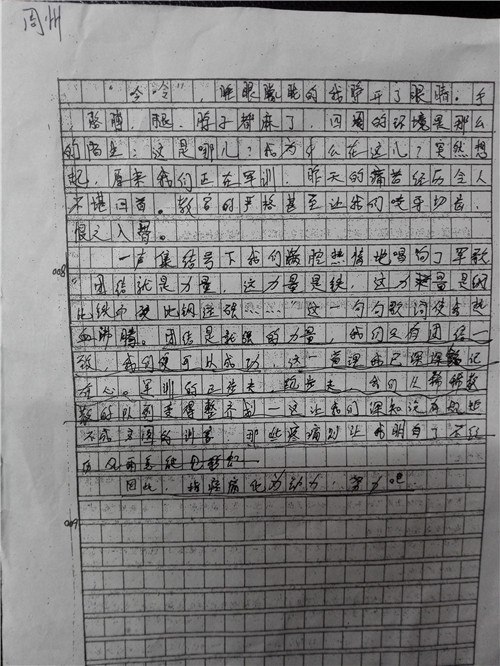 周州
"令冷" 睡眼朦胧的我睁开了眼睛。手
胳膊、腿、脖子都麻了。四周的环境是那么
的陌生：这是哪儿？我为什么在这儿？突然想
起，原来我们正在军训，昨天的痛苦经历令人
不堪回首。教官的严格甚至让我们咬牙切齿，
恨之入骨。
一声集结号下我们满腔热情地唱向了军歌
"团结就是力量，这力量是铁，这力量是钢
比铁还硬比钢还强……"这一句句歌词使我热
血沸腾。团结是最强的力量，我们只有团结一
致，我们便可以成功，这一道理我已深深铭记
在心。军训的正步走、跑步走，我们从稀稀散
散的队列走得整齐划一这让我们深知没有
不成的训练，那些疼痛则让我明白了不经
历风雨怎能见彩虹
因此，将疼痛化为动力，努力吧
600